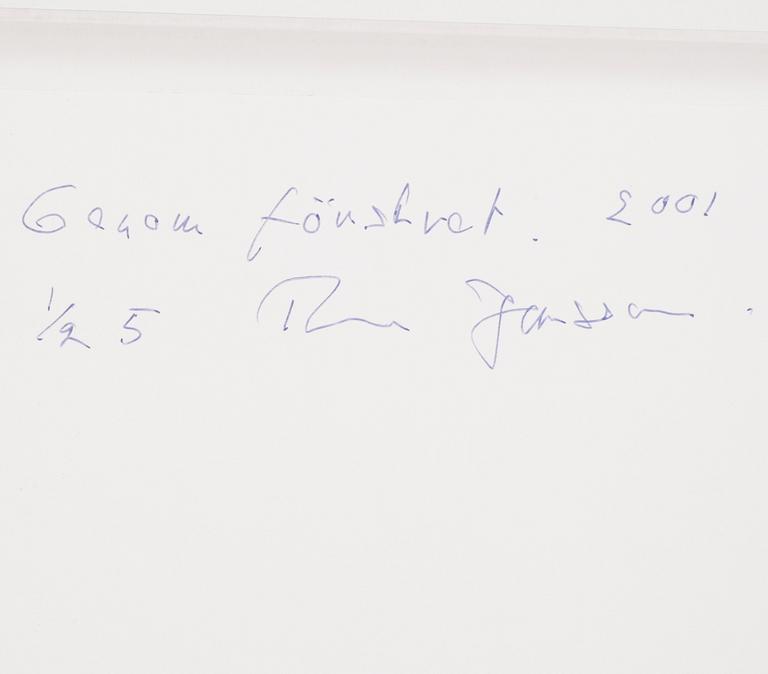 Genom fönstret. 2001
1/25 Jansson